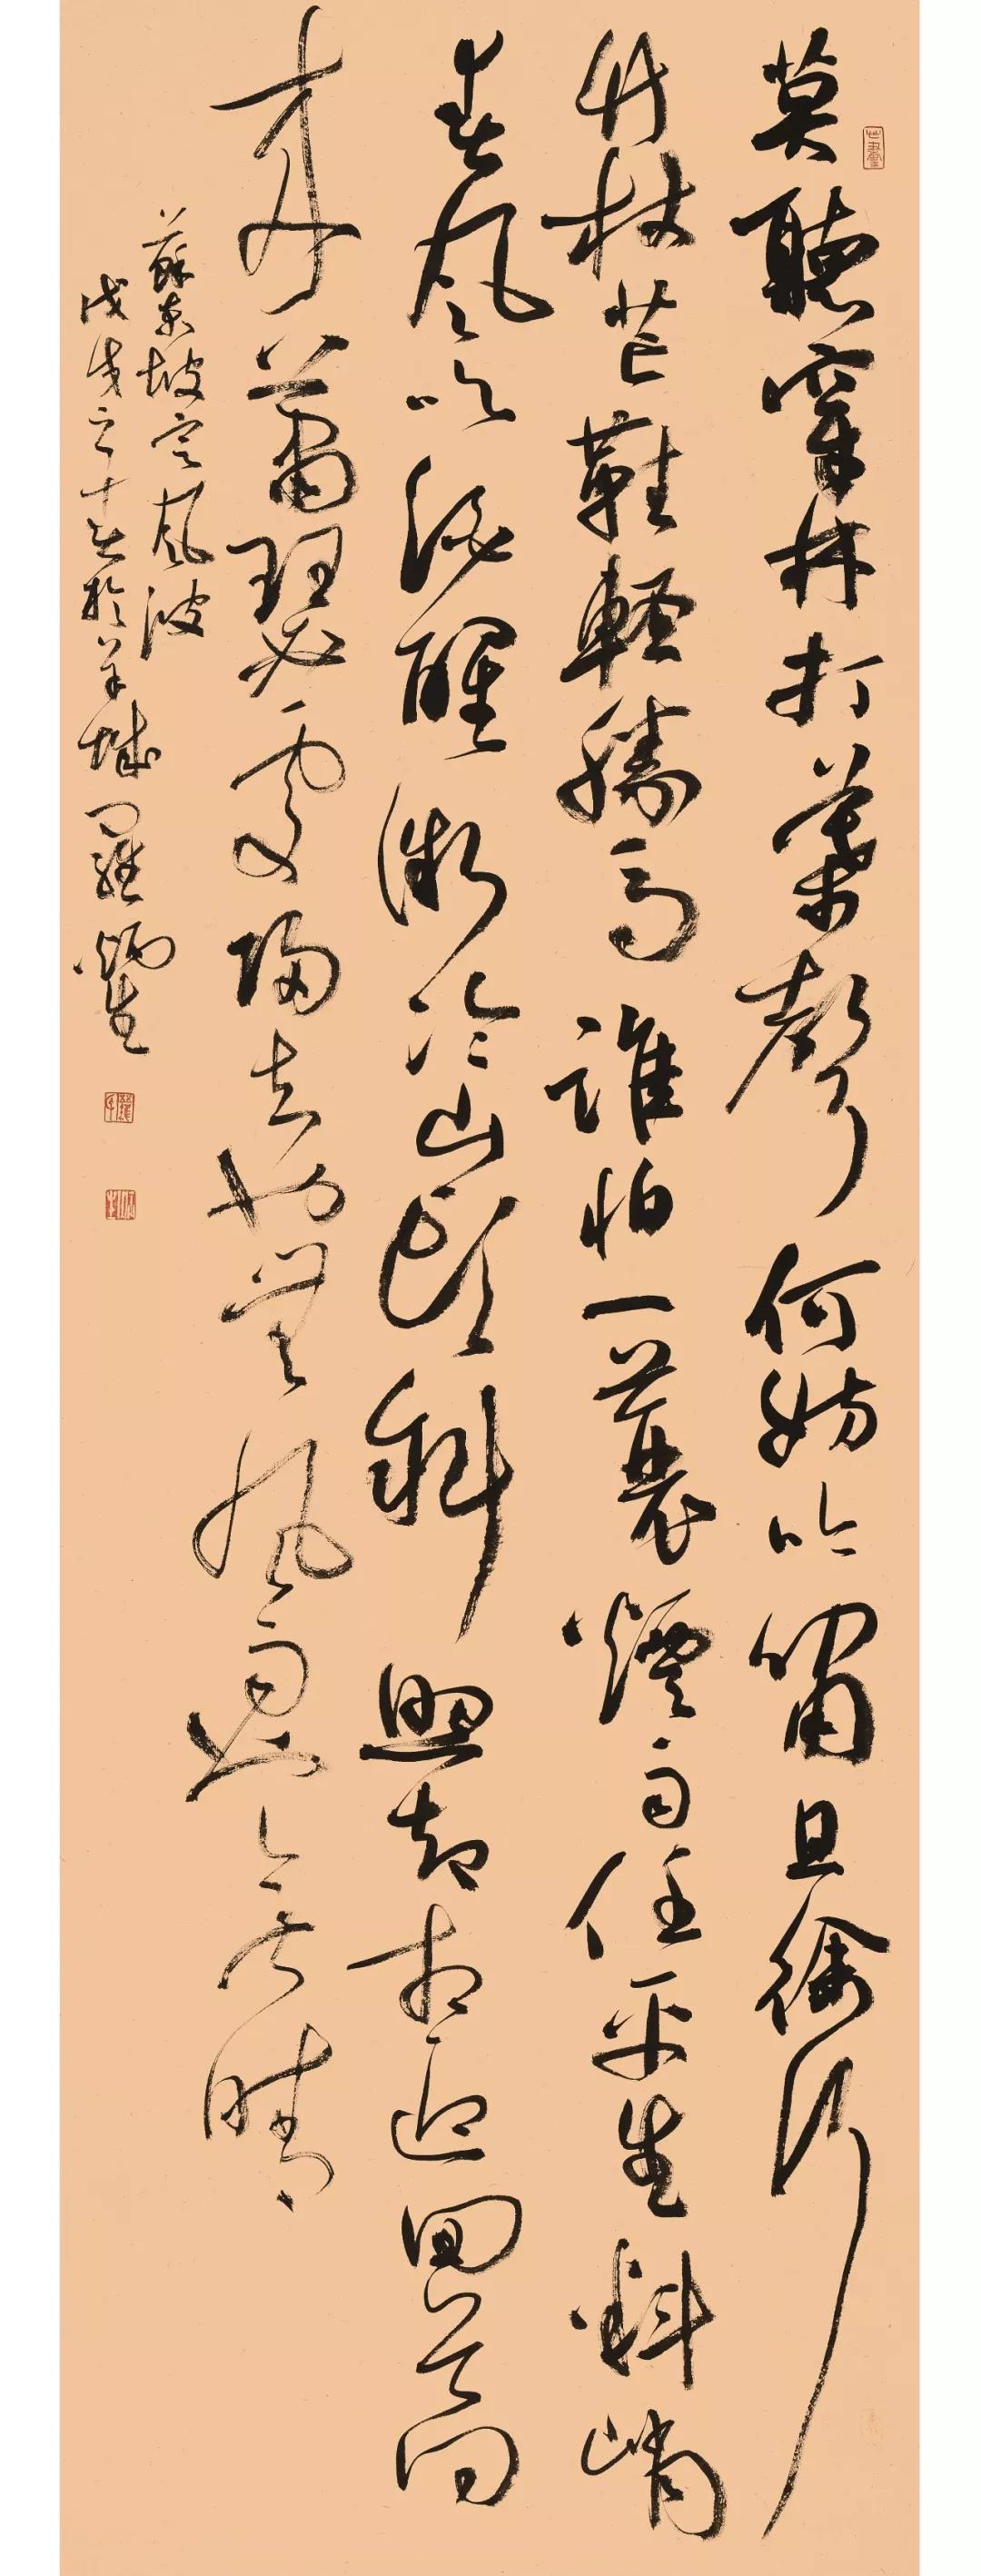 莫聽穿林打葉聲何妨吟嘯且徐行
竹杖芒鞋輕勝馬誰怕一蓑煙雨任平生料峭
春風吹酒醒微冷山頭斜照却相迎回首向
來蕭瑟處歸去也無風雨也無晴
蘇東坡定風波
戊戌之於羊城羅炳生